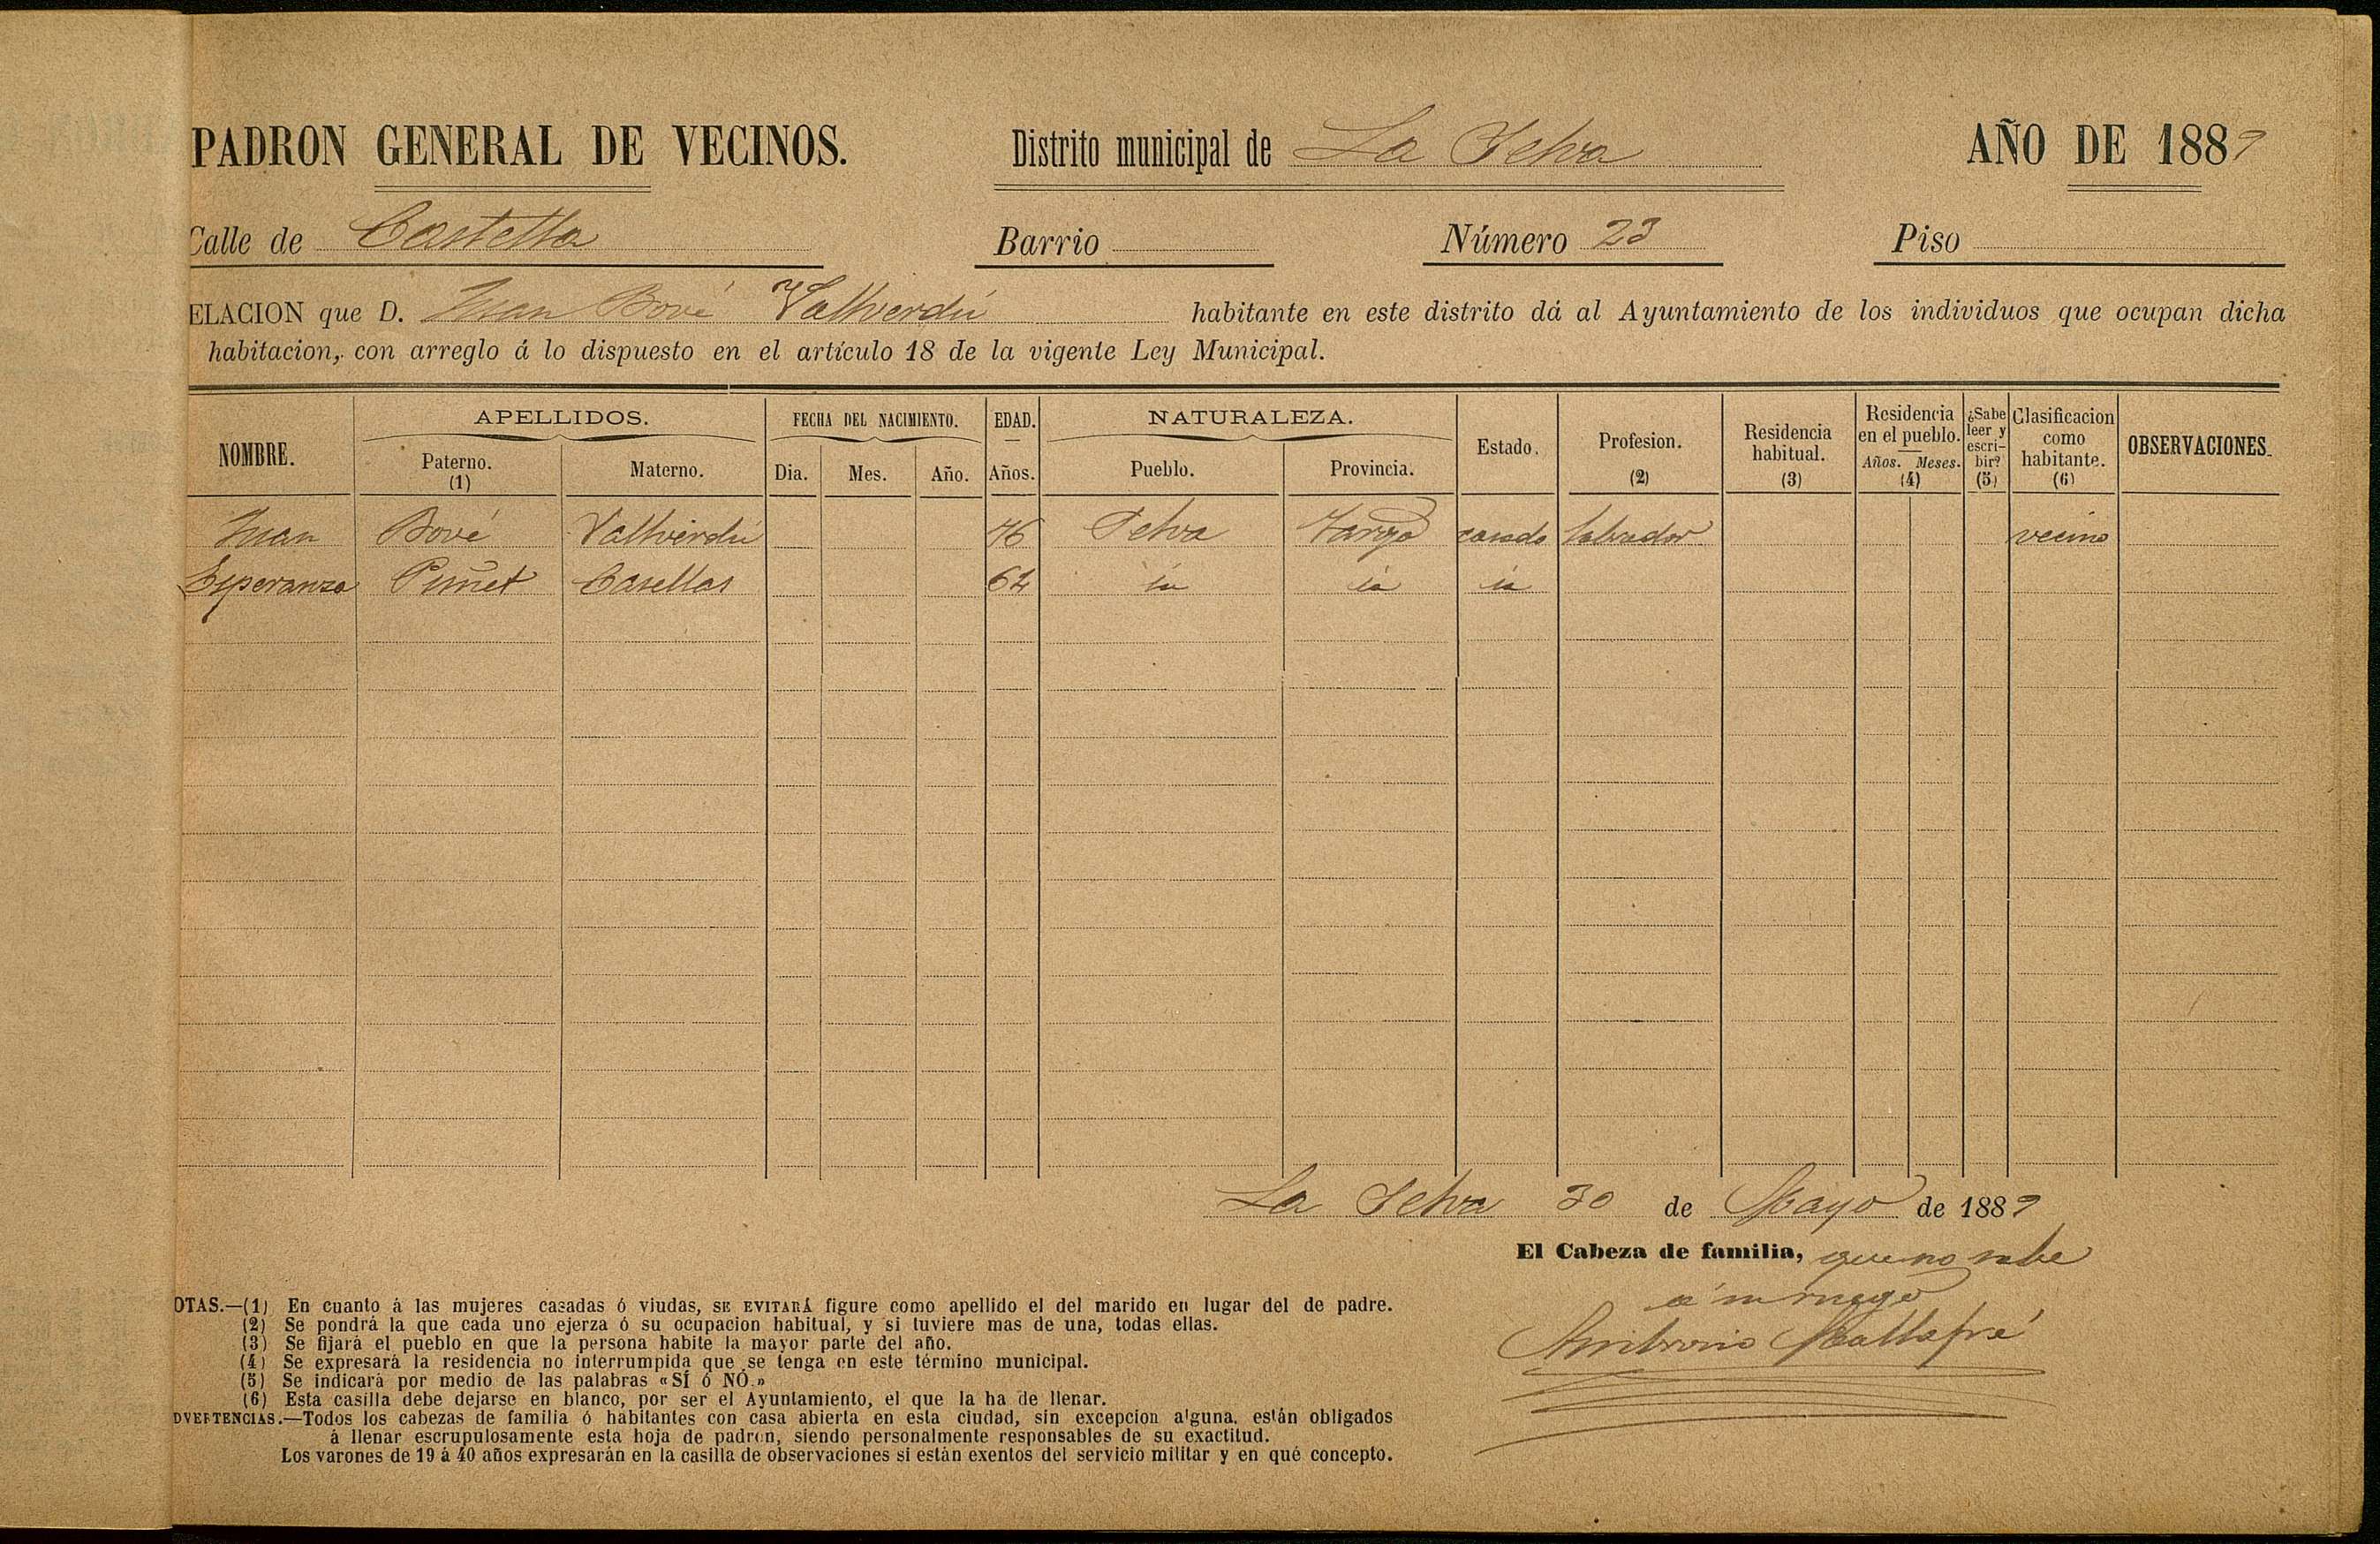 PADRON GENERAL DE VECINOS. Distrito municipal de La Selva AÑO DE 1889
Calle de Castella Barrio Número 23 Piso
ELACION que D. Juan Bové Vallverdú habitante en este distrito dá al Ayuntamiento de los individuos que ocupan dicha
habitacion, con arreglo á lo dispuesto en el artículo 18 de la vigente Ley Municipal.
NOMBRE. APELLIDOS. FECHA DEL NACIMIENTO. EDAD. NATURALEZA. Estado. Profesion. Residencia habitual. (3) Residencia en el pueblo. ¿Sabe leer y escribir? (5) Clasificacion como habitante. (6) OBSERVACIONES.
Paterno. (1) Materno. Dia. Mes. Año. Años. Pueblo. Provincia. (2) Años. Meses. (4)
Juan Bové Vallverdú 76 Selva Tarrga casado labrador vecino
Esperanza Piñet Casellas 62 id id id
La Selva 30 de Mayo de 1889
El Cabeza de familia, que no sabe
á su ruego
Ambrosio Mallafré
OTAS.—(1) En cuanto á las mujeres casadas ó viudas, SE EVITARÁ figure como apellido el del marido en lugar del de padre.
(2) Se pondrá la que cada uno ejerza ó su ocupacion habitual, y si tuviere mas de una, todas ellas.
(3) Se fijará el pueblo en que la persona habite la mayor parte del año.
(4) Se expresará la residencia no interrumpida que se tenga en este término municipal.
(5) Se indicará por medio de las palabras «SÍ ó NÓ.»
(6) Esta casilla debe dejarse en blanco, por ser el Ayuntamiento, el que la ha de llenar.
DVERTENCIAS.—Todos los cabezas de familia ó habitantes con casa abierta en esta ciudad, sin excepcion alguna, están obligados
á llenar escrupulosamente esta hoja de padron, siendo personalmente responsables de su exactitud.
Los varones de 19 á 40 años expresarán en la casilla de observaciones si están exentos del servicio militar y en qué concepto.